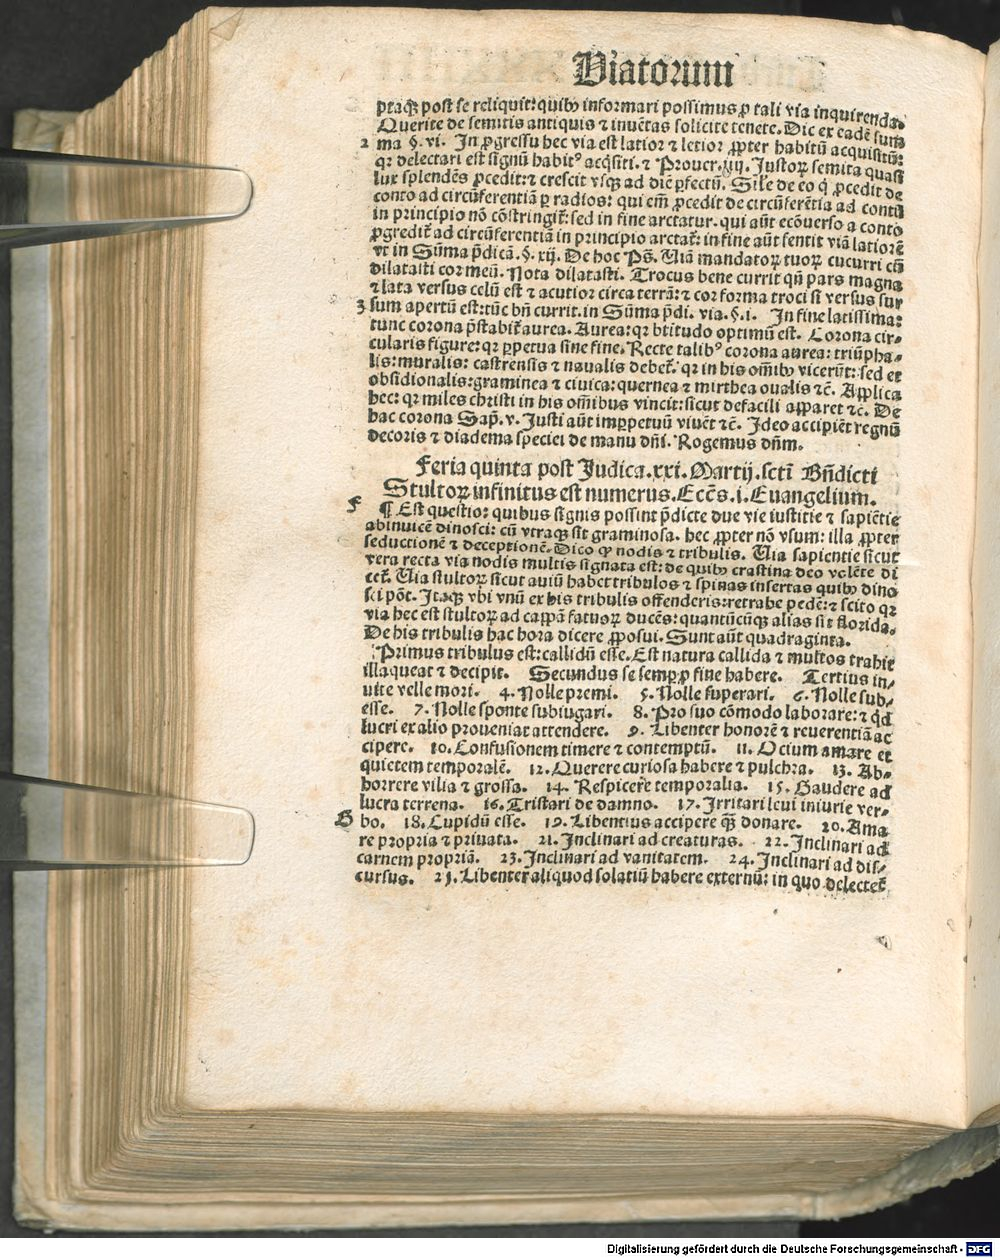 Viatorum
ptaqꝫ post se reliquit: quibꝰ informari possimus ꝓ tali via inquirenda.
Querite de semitis antiquis ⁊ inuētas solicite tenete. Dic ex eadē sum
2 ma §. vi. In ꝓgressu hec via est latior ⁊ letior ꝓpter habitū acquisitū:
qꝛ delectari est signū habitꝰ acq̄siti. ⁊ Prouer. iiij. Iustoꝝ semita quasi
lux splendēs ꝓcedit: ⁊ crescit vsqꝫ ad diē ꝑfectū. Sil'e de eo q̇ ꝓcedit de
conto ad circūferentiā ꝑ radios: qui em̄ ꝓcedit de circūferētia ad contū
in principio nō cōstringit᷑: sed in fine arctatur. qui aūt ecōuerso a conto
ꝓgredit᷑ ad circūferentiā in principio arctat᷑: in fine aūt sentit viā latiorē
vt in Sūma p̄dicā. §. xij. De hoc Ps̄. Viā mandatoꝝ tuoꝝ cucurri cū
dilatasti cor meū. Nota dilatasti. Trocus bene currit qn̄ pars magna
⁊ lata versus celū est ⁊ acutior circa terrā: ⁊ cor forma troci si versus sur
3 sum apertū est: tūc bn̄ currit. in Sūma p̄di. via. §. i. In fine latissima:
tunc corona p̄stabit᷑ aurea. Aurea: qꝛ btitudo optimū est. Corona cir⸗
cularis figure: qꝛ ꝑpetua sine fine. Recte talibꝰ corona aurea: triūpha⸗
lis: muralis: castrensis ⁊ naualis debet᷑. qꝛ in his om̄ibꝰ vicerūt: sed et
obsidionalis: graminea ⁊ ciuica: quernea ⁊ mirthea oualis ⁊c̄. Applica
hec: qꝛ miles christi in his om̄ibus vincit: sicut defacili apparet ⁊c̄. De
hac corona Sap̄. v. Iusti aūt imꝑpetuū viuēt ⁊c̄. Ideo accipiēt regnū
decoris ⁊ diadema speciei de manu dn̄i. Rogemus dn̄m.
Feria quinta post Judica. xxi. Martij. scti̅ Bn̄dicti
Stultoꝝ infinitus est numerus. Eccēs. i. Euangelium.
F ¶ Est questio: quibus signis possint p̄dicte due vie iustitie ⁊ sapiētie
abinuicē dinosci: cū vtraqꝫ sit graminosa. hec ꝓpter nō vsum: illa ꝓpter
seductionē ⁊ deceptionē. Dico ꝙ nodis ⁊ tribulis. Via sapientie sicut
vera recta via nodis multis signata est: de quibꝰ crastina deo volēte di
cet᷑. Via stultoꝝ sicut auiū habet tribulos ⁊ spinas insertas quibꝰ dino
sci pōt. Itaqꝫ vbi vnū ex his tribulis offenderis: retrahe pedē: ⁊ scito qꝛ
via hec est stultoꝝ ad cappā fatuoꝝ ducēs: quantūcūqꝫ alias sit florida.
De his tribulis hac hora dicere ꝓposui. Sunt aūt quadraginta.
Primus tribulus est: callidū esse. Est natura callida ⁊ multos trahit
illaqueat ⁊ decipit. Secundus se semꝑ ꝓ fine habere. Tertius in⸗
uite velle mori. 4. Nolle premi. 5. Nolle superari. 6. Nolle sub⸗
esse. 7. Nolle sponte subiugari. 8. Pro suo cōmodo laborare: ⁊ qd̄
lucri ex alio proueniat attendere. 9. Libenter honorē ⁊ reuerentiā ac
cipere. 10. Confusionem timere ⁊ contemptū. 11. Ocium amare et
quietem temporalē. 12. Querere curiosa habere ⁊ pulchra. 13. Ab⸗
horrere vilia ⁊ grossa. 14. Respicere temporalia. 15. Gaudere ad
lucra terrena. 16. Tristari de damno. 17. Irritari leui iniurie ver⸗
G bo. 18. Cupidū esse. 19. Libentius accipere qꝫ̄ donare. 20. Ama
re propria ⁊ priuata. 21. Inclinari ad creaturas. 22. Inclinari ad
carnem propriā. 23. Inclinari ad vanitatem. 24. Inclinari ad dis⸗
cursus. 25. Libenter aliquod solatiū habere externū: in quo delectet᷑
Digitalisierung gefördert durch die Deutsche Forschungsgemeinschaft - DFG